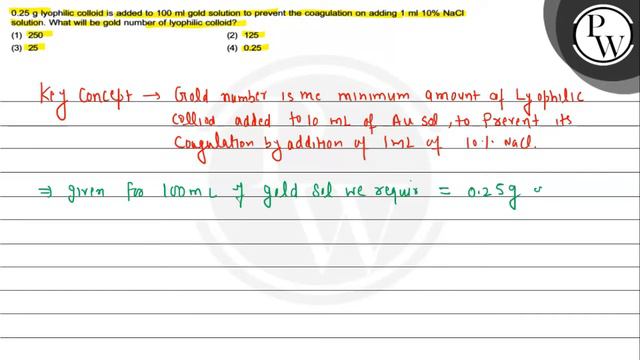 0.25 g lyophilic colloid is added to 100 ml gold solution to prevent the coagulation on adding 1 ml 10% NaCl
solution. What will be gold number of lyophilic colloid?
(1) 250 (2) 125
(3) 25 (4) 0.25
PW
Key Concept → Gold number is me minimum amount of Lyophilic
colliod added to 10 mL of Au sol, to Prevent its
Coagulation by addition of 1mL of 10% NaCl.
⇒ given for 100mL of gold Sol we requir = 0.25g